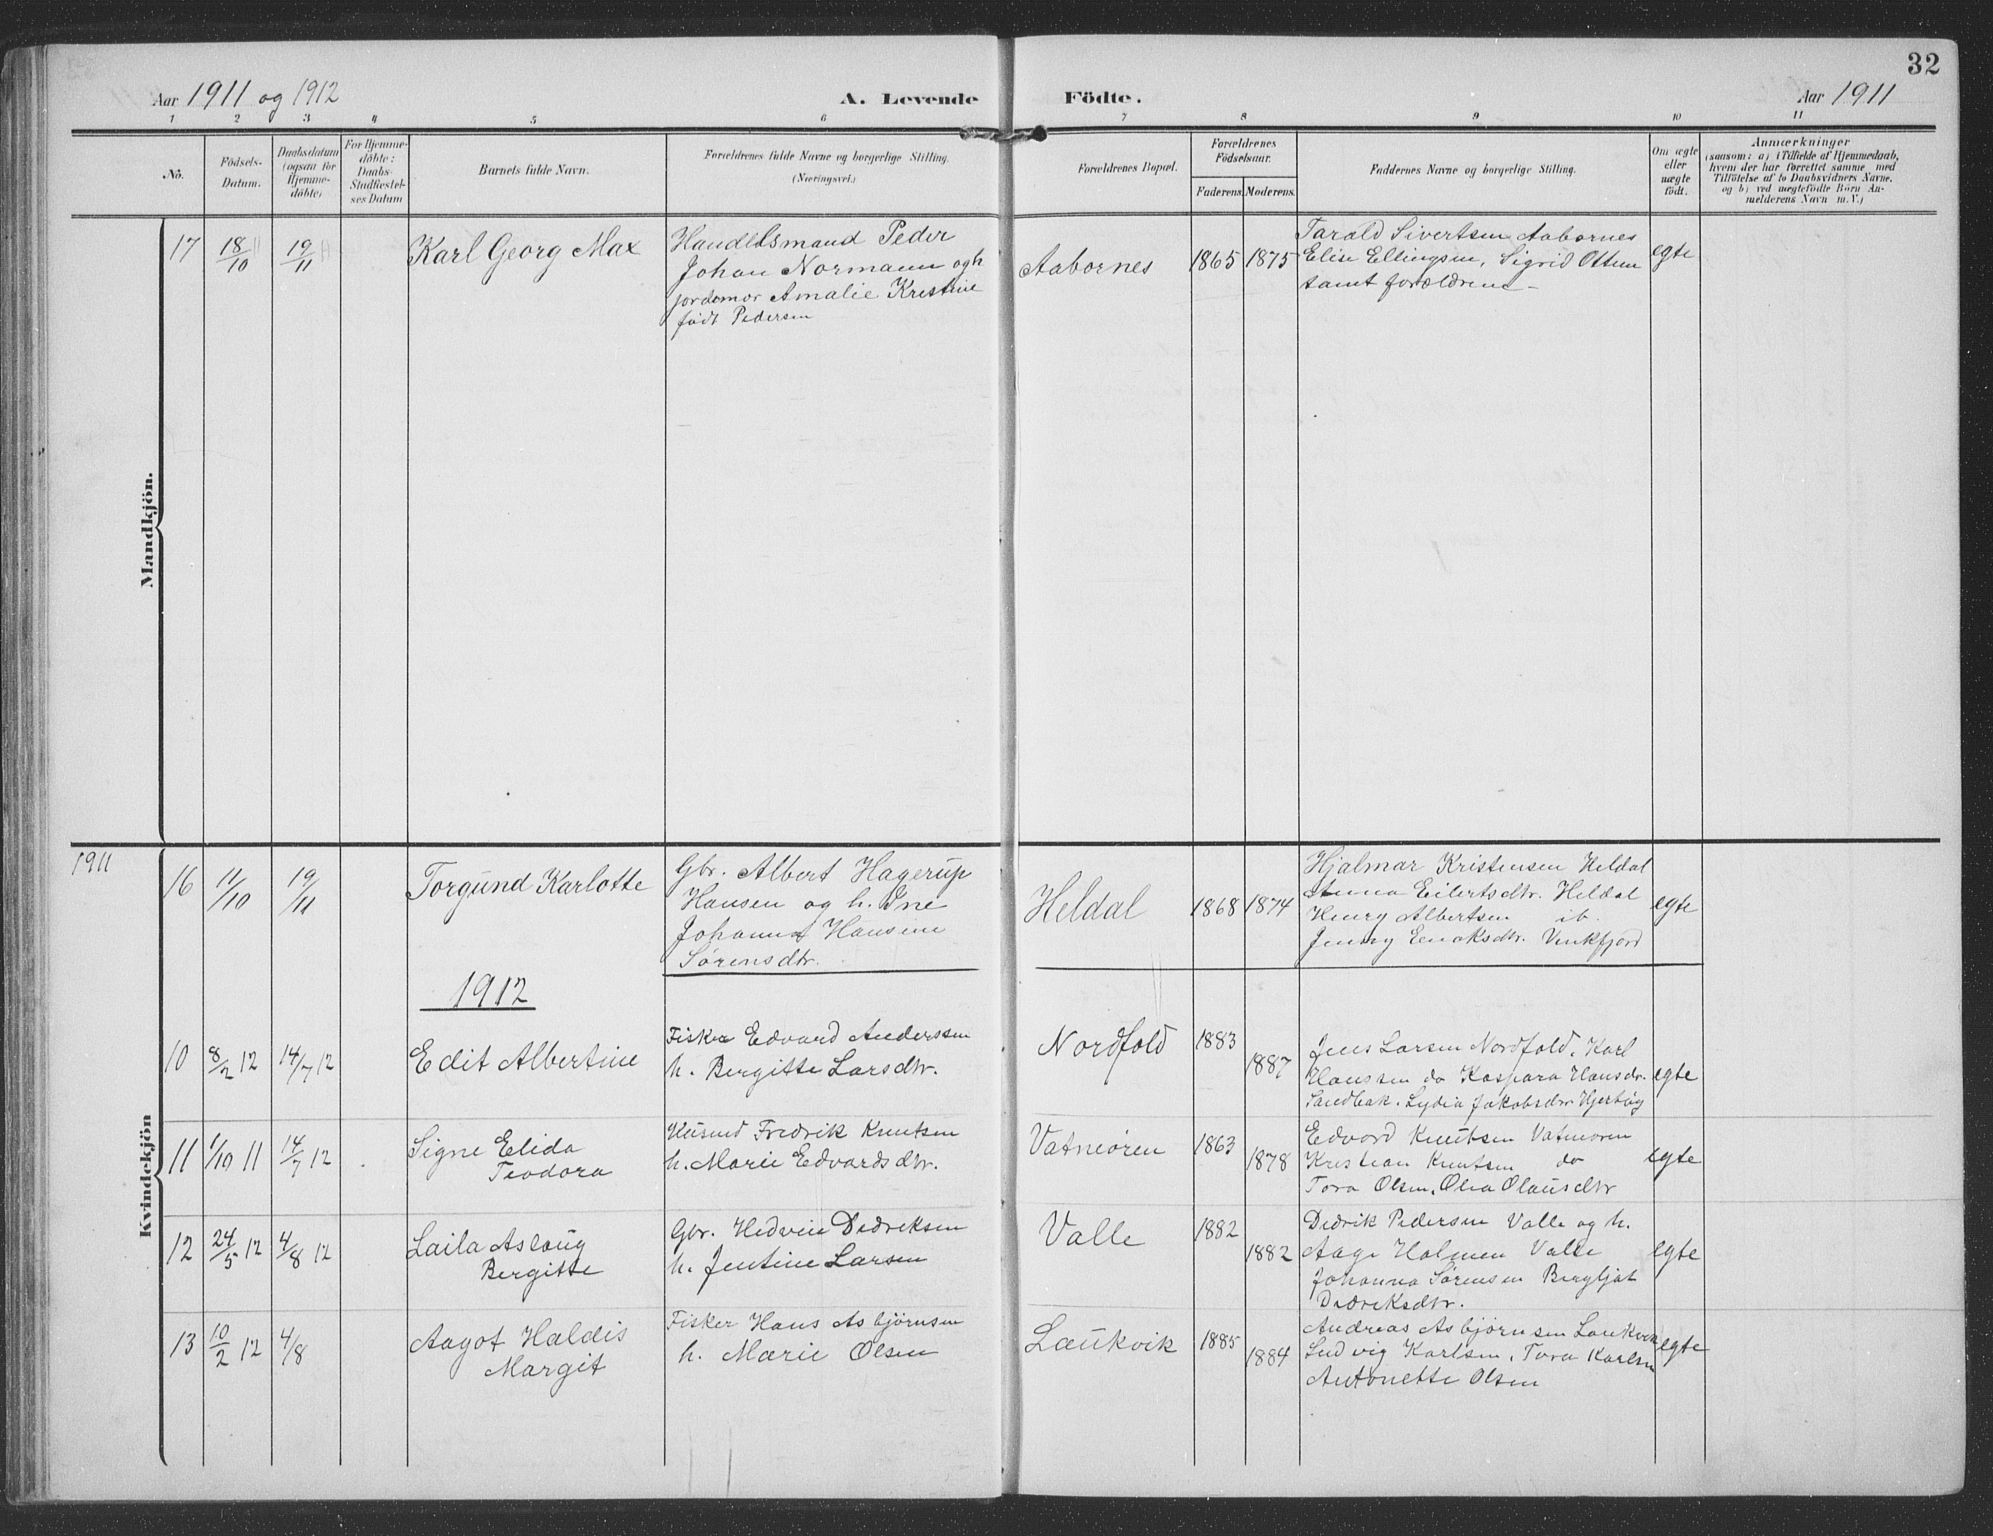 32
Aar 1911 og 1912 A. Levende Födte. Aar 1911
1 2 3 4 5 6 7 8 9 10 11
No.
Födsels-
Datum.
Daabsdatum
(ogsaa for
Hjemme-
döbte)
For Hjemme-
döbte:
Daabs-
Stadfæstel-
ses Datum
Barnets fulde Navn.
Forældrenes fulde Navne og borgerlige Stilling.
(Næringsvei.)
Forældrenes Bopæl.
Forældrenes
Födselsaar.
Faderens. Moderens.
Faddernes Navne og borgerlige Stilling.
Om ægte
eller
uægte
födt.
Anmærkninger
(saasom: a) i Tilfælde af Hjemmedaab,
hvem der har forrettet samme med
Tilföielse af to Daabsvidners Navne.
og b) ved uægtefödte Börn An-
melderens Navn m.V.)
Mandkjön.
17 18/10 11 19/11 11
Karl Georg Max
Handelsmand Peder
Johan Normann og h
jordmor Amalie Kristine
født Pedersen
Aabornes 1865 1875
Tarald Sivertsen Aabornes
Elise Ellingsen, Sigrid Ottem
samt forældrene
egte
Kvindekjön
1911
16 11/10 19/11
Torgund Karlotte
Gbr. Albert Hagerup
Hansen og h. Ine
Johanna Hansine
Sørensdtr.
Heldal 1868 1874
Hjalmar Kristensen Heldal
Anna Eilertsdtr. Heldal
Henry Albertsen ib.
Jenny Enoksdtr. Vinkfjord
egte
1912
10 8/2 12 14/7 12
Edit Albertine
Fisker Edvard Anderssen
h. Bergitte Larsdtr.
Nordfold 1883 1887
Jens Larsen Nordfold, Karl
Hanssen do Kaspara Hansdtr.
Sandbak. Lydia Jakobsdtr
egte
11 1/10 11 14/7 12
Signe Elida
Teodora
Husmd Fredrik Knutsen
h. Marie Edvardsdtr.
Vatneøren 1863 1878
Edvard Knutsen Vatneøren
Kristian Knutsen do
Tora Olsen, Olea Olausdtr
egte
12 24/5 12 4/8 12
Laila Aslaug
Bergitte
Gbr. Hedvin Didriksen
h. Jentine Larsen
Valle 1882 1882
Didrik Pedersen Valle og h.
Aage Holmen Valle
Johanna Sørensen Bergljot
Didriksdtr.
egte
13 10/2 12 4/8
Aagot Haldis
Margit
Fisker Hans Asbjørnsen
h. Marie Olsen
Laukvik 1885 1884
Andreas Asbjørnsen Laukvik
Ludvig Karlsen, Tora Karlsen
Antonette Olsen
egte